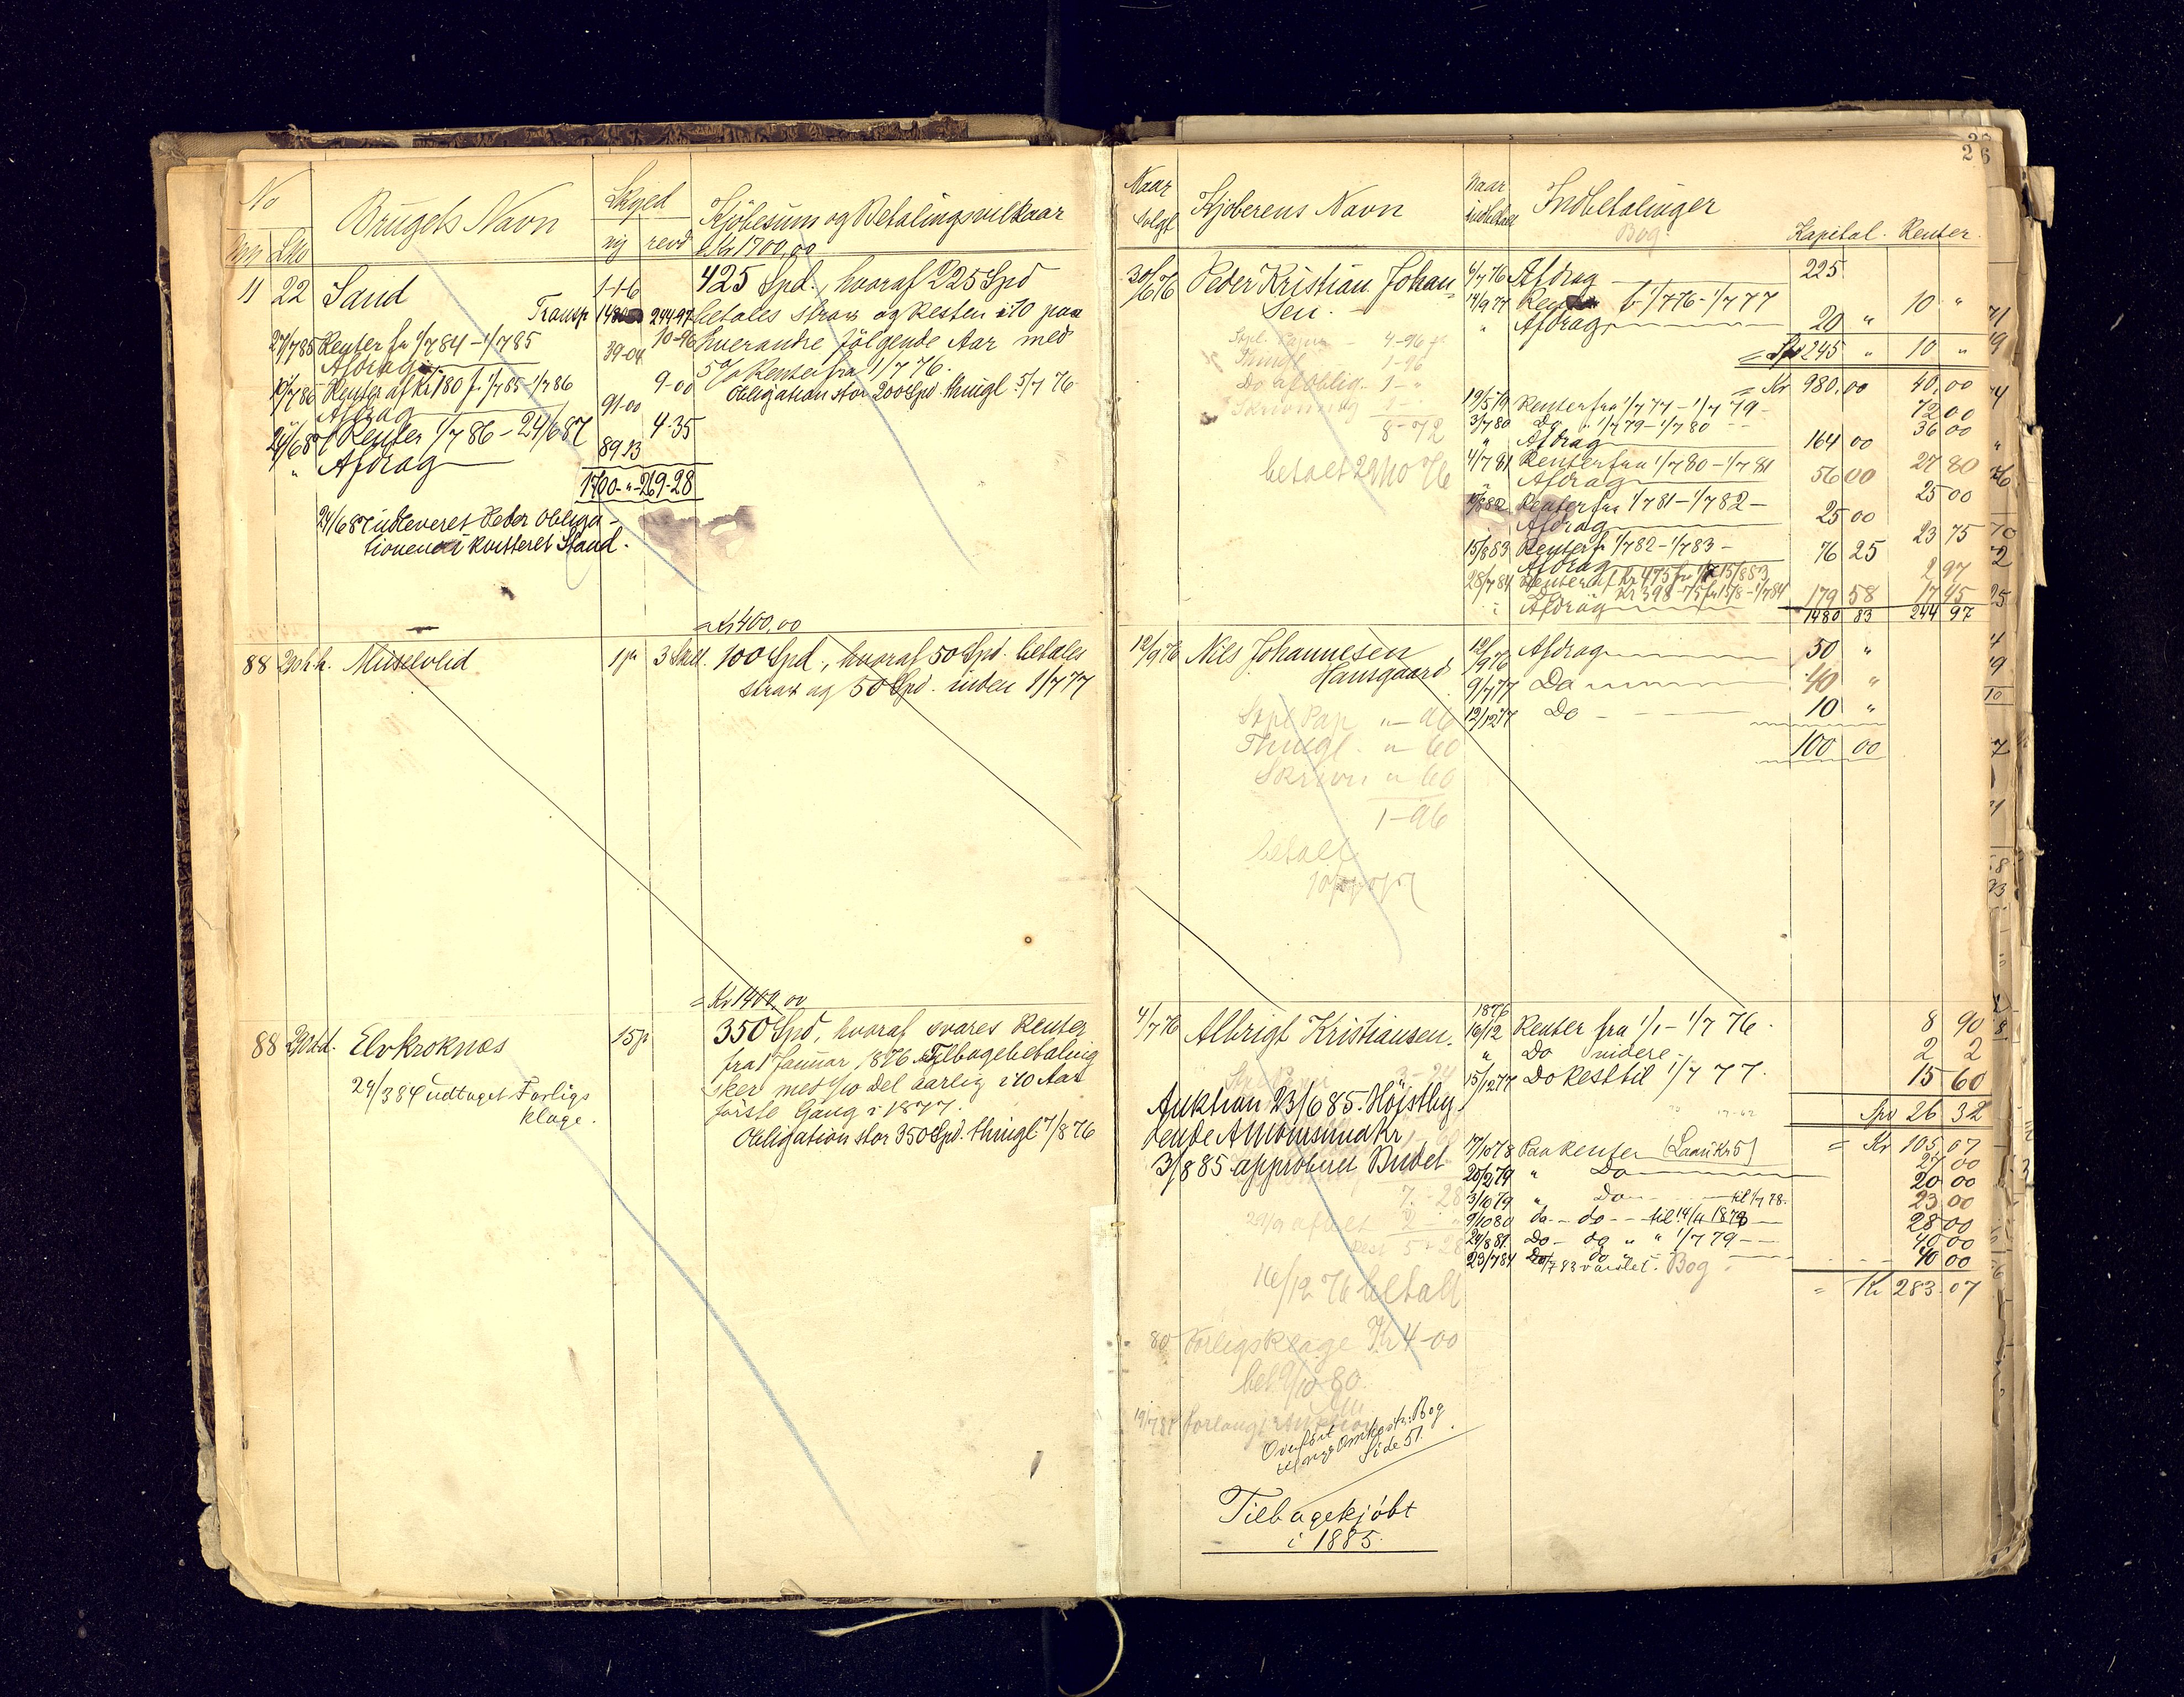 No
Brugets Navn
Skyld
Kjöbesum og Betalingsvilkaar
Mn LNo
ny revd
= Kr 1700,00
11 22 Sand
1-1-6
425 Spd., hvoraf 225 Spd
Transp 1480 244-97
betales strax og Resten i 10 paa
27/7 85 Renter fr 1/7 84 - 1/7 85
10-96
hverandre fölgende Aar med
Afdrag
39-04
5 % Renter fra 1/7 76.
Renter af Kr 180 f. 1/7 85 - 1/7 86
9-00
Obligation stor 200 Spd. thingl. 5/7 76
Afdrag
91-00
24/6 87 Renter 1/7 86 - 24/6 87
4-35
" Afdrag
89 13
1700 - " - 269-28
24/6 87 udleveret Peder Obliga-
tionen i kvitteret Stand.
= Kr 400,00
88
3 Skill.
100 Spd., hvoraf 50 Spd. betales
strax og 50 Spd. inden 1/7 77
= Kr 1400,00
88 Elvkroknæs
15 p
350 Spd, hvoraf svares Renter
fra 1 Januar 1876. Tilbagebetaling
sker med 1/10 del aarlig i 10 Aar
förste Gang i 1877.
Obligation stor 350 Spd. thingl. 7/8 76
24/3 84 udtaget Forligs
klage.
26
Naar
solgt
Kjöberens Navn
Naar
indbetalt
Indbetalinger
Bog
Kapital. Renter.
30/6 76 Peder Kristian Johan-
sen.
6/7 76 Afdrag 225
14/9 77 Renter fr 1/7 76 - 1/7 77 10 "
" Afdrag 20 "
= Spd 245 " 10 "
= Kr 980,00 40,00
Stpl. Papir - 4-96
Thingl 1-96
Do af Oblig. 1- "
8-72
betalt 29/10 76
19/5 79 Renter fra 1/7 77 - 1/7 79 - 72 00
3/7 80 Do " 1/7 79 - 1/7 80 - - 36 00
" Afdrag 164 00
4/7 81 Renter fra 1/7 80 - 1/7 81 27 80
" Afdrag 56 00
Renter fra 1/7 81 - 1/7 82 - 25 00
Afdrag 25 00
15/8 83 Renter fr 1/7 82 - 1/7 83 - 23 75
Afdrag 76 25
28/7 84 Renter af Kr 475 fr 1/7 - 15/8 83 2 97
Do Kr 398-75 fr 15/8 - 1/7 84 17 45
Afdrag 179 58
1480 83 244 97
12/9 76 Nils Johannesen
Hansgaard
12/9 76 Afdrag 50 "
9/7 77 Do 40 "
12/12 77 Do 10 "
100 00
Stpl Pap " - 96
Thingl. " 60
Skrivn " 60
1-96
betalt
4/7 76 Albrigt Kristiansen.
1876
16/12 Renter fra 1/1 - 1/7 76. 8 90
" Do videre 2 2
15/12 77 Do Rest til 1/7 77. 15 60
Spd 26 32
= Kr 105,07
3-24
Auktion 23/6 85. Höistby-
dende
3/8 85 approberet Budet
17/10 78 Paa Renter (Laan Kr 5) 27 00
20/2 79 " Do 20 00
3/10 79 " Do til 1/7 78. 23 00
9/10 80 do - do - til 14/11 1878 28 00
24/8 81 Do - do " " 1/7 79 - - 40 00
23/7 84 do do 40 00
varslet. Bog
= Kr 283.07
7-28
29/9 afbet 2- "
Rest 5-28
16/12 76 betalt
80 Forligsklage Kr 4-00
bet. 9/10 80.
19/7 84 forlangt Auktion
Overført
Bog
Side 51.
Tilbagekjöbt
i 1885.